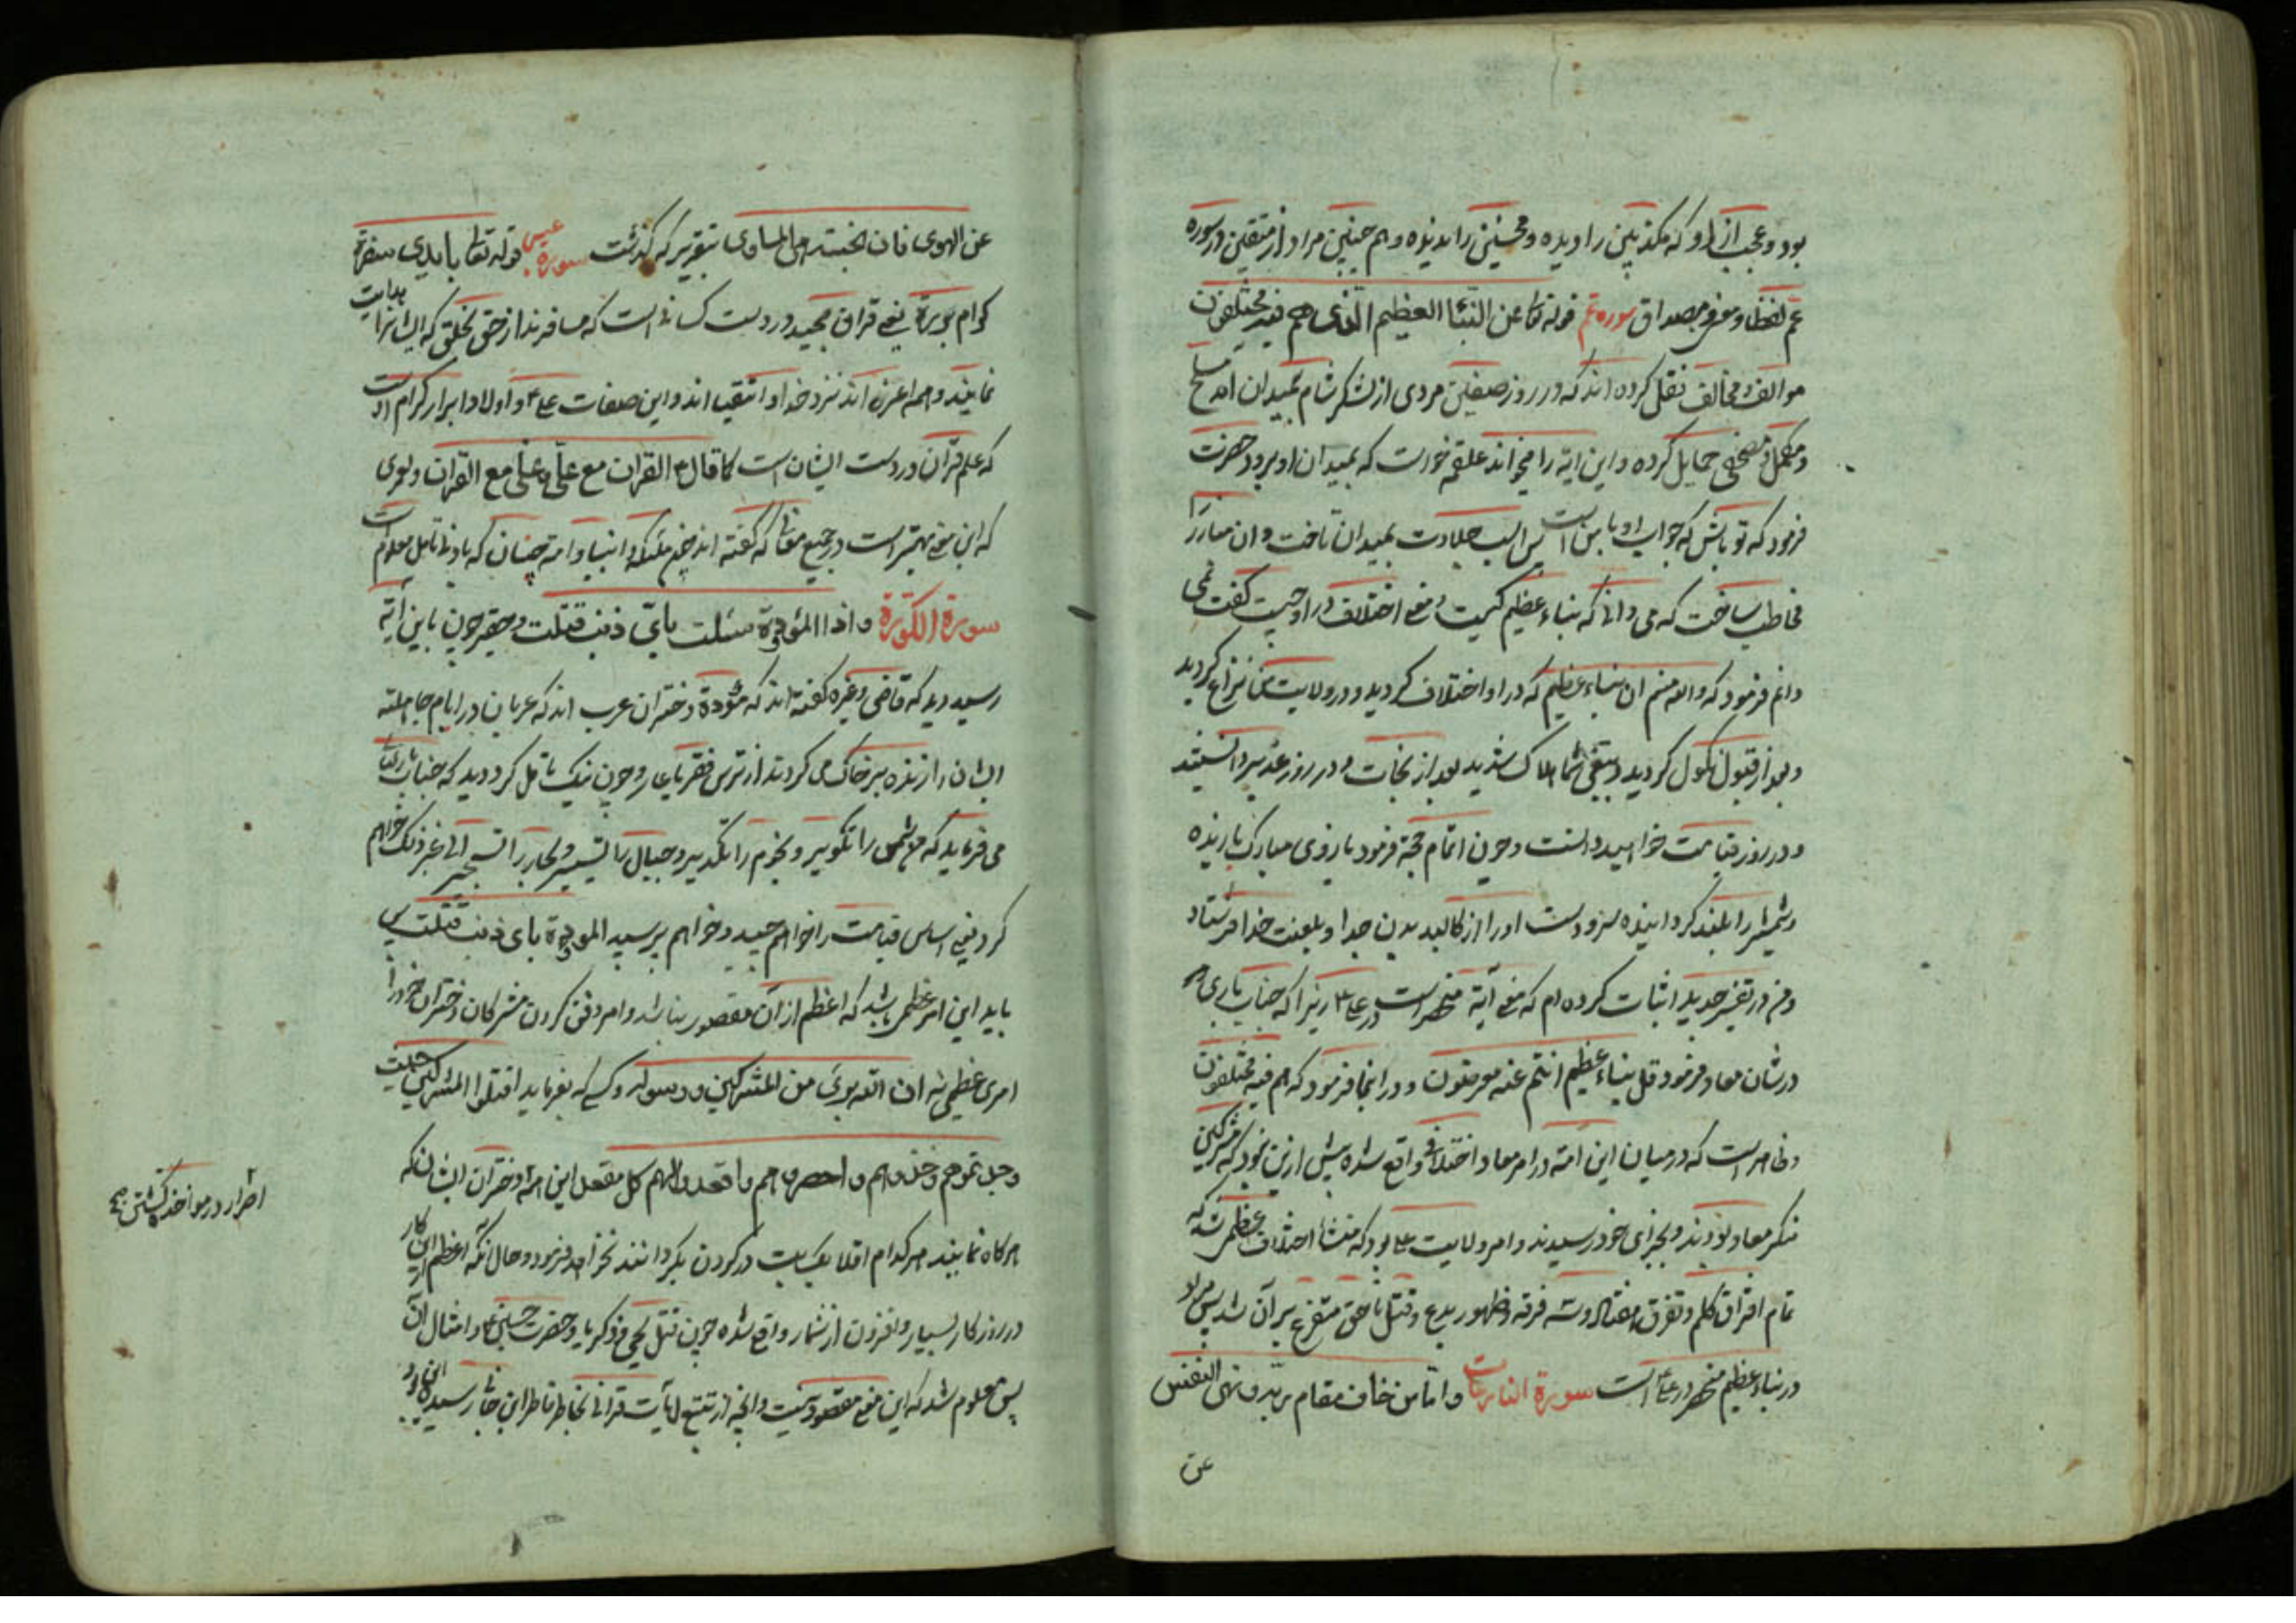 بود و عجب از او که مکذبین را دیده و محسنین را ندیده و هم چنین مراد از متقین در سوره
عم لفظا و معنی و مصداق سوره عم قوله تعا عن النبا العظیم الذی هم فیه مختلفون
موالف و مخالف نقل کرده اند که در روز صفین مردی از لشکر شام بمیدان امد مسلح
و مکمل و مصحفی حمایل کرده و این ایة را میخواند علقمه خواست که بمیدان او برود حضرت
فرمود که تو باش که جواب او با من است پس اسب جلادت بمیدان تاخت و ان مبارز را
مخاطب ساخت که می دانی که نباء عظیم کیست و معنی اختلاف در او چیست گفت نمی
دانم فرمود که والله منم ان نباء عظیم که در او اختلاف کردید و در ولایت من نزاع کردید
و بعد از قبول نکول کردید و ببغی شما هلاک شدید بعد از نجات و در روز غدیر دانستید
و در روز قیامت خواهید دانست و چون اتمام حجة فرمود بازوی مبارک یازیده
و شمشیر را بلند کردانیده سر و دست او را از کالبد بدن جدا و بلعنت خدا فرستاد
و در تفسیر جدید اثبات کرده ام که معنی آیة منحصر است در علی زیرا که جناب باری
در شان معاد فرمود قل نباء عظیم انتم عنه معرضون و در اینجا فرمود که هم فیه مختلفون
و ظاهر است که در میان این امة در امر معاد اختلافی واقع نشده بیش ازین نبود که مشرکین
منکر معاد بودند و بجزای خود رسیدند و امر ولایت بود که منشا اختلاف عظمی شد که
تمام افتراق کلم و تفرق هفتاد و سه فرقه و ظهور بدع و قتل ناحق متفرع بر آن شد پس مراد
در نباء عظیم منحصر در علی است سورة النازعات و اما من خاف مقام ربه و نهی النفس
عن
عن الهوی فان الجنة هی الماوی بتقریر که گذشت سورة عبس قوله تعا بایدی سفرة
کرام بررة یعنی قران مجید در دست کسانی است که مسافرند از حق بخلق که ایشانرا هدایت
نمایند و همه اعزه اند نزد خدا و اتقیا اند و این صفات علی و اولاد ابرار کرام اوست
که علم قرآن در دست ایشان است کما قال القران مع علی و علی مع القران و لعمری
که این معنی بهتر است در جمیع مقا که گفته اند چون ملئکه و انبیا و امة چنان که بادنی تامل معلوم است
سورة الکورة و اذا الموؤدة سئلت بای ذنب قتلت و حقیر چون باین آیة
رسید دید که قاضی و غیره گفته اند که موؤدة دختران عرب اند که عربان در ایام جاهلیة
ایشان را زنده بر خاک می کردند از ترس فقر یا عار و چون نیک تامل کرد دید که جناب باری تعا
می فرماید که شمس را تکویر و نجوم را تکدیر و جبال را تسییر و بحار را تسجیر الی غیر ذلک خواهم
کرد یعنی اساس قیامت را خواهم چید و خواهم پرسید الموؤدة بای ذنب قتلت پس
باید این امر عظمی باشد که اعظم از آن مقصور نباشد و امر دفن کردن مشرکان دختران خود را
امری عظمی نه ان الله بری من المشرکین و رسوله و کسی که بفرماید اقتلوا المشرکین حیث
وجدتموهم و خذوهم و احصروهم و اقعدوا لهم کل مقعد این امة دختران ایشان که
هر کاه نمایند هر کدام اقلا یک بت در گردن بگردانند نخواهد فرمود و حال آنکه اعظم از این کار
در روزکار بسیار و افزون از شمار واقع شده چون قتل یحیی و زکریا و حضرت حسین و امثال آن
پس معلوم شد که این معنی مقصود نیست و آنچه از تتبع آیات قرانی بخاطر فاطر این خاکسار رسیده
اضرار در مواخذه کشتن